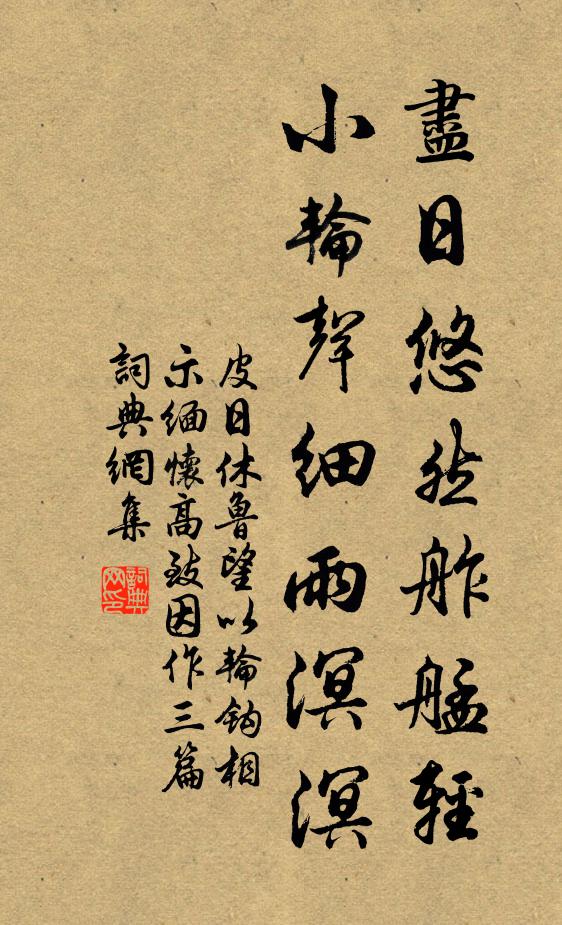 盡日悠然舴艋輕
小輪聲細雨溟溟
皮日休魯望以輪鈎相
示緬懷高致因作三篇
詞典網集
詞典网印